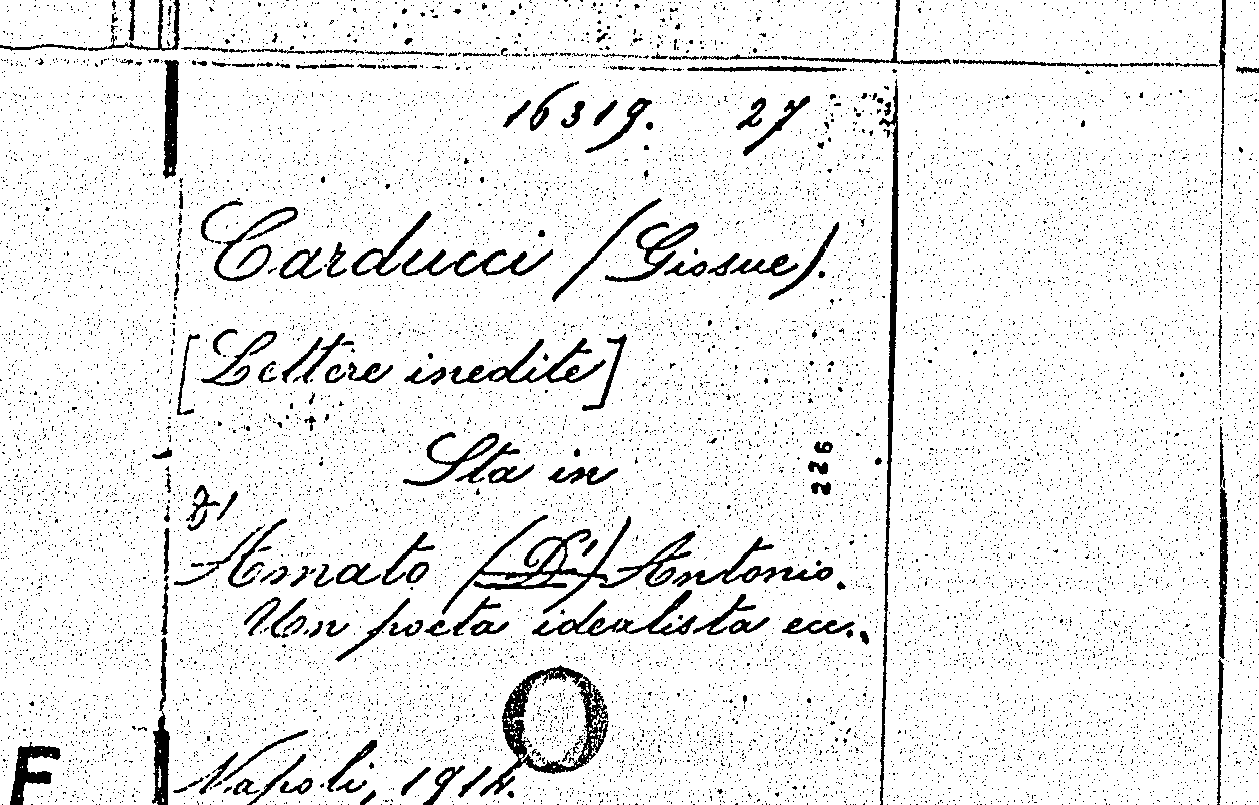 16319. 27
Carducci (Giosue).
[Lettere inedite]
Sta in
226
D'
Amato (D') Antonio.
Un poeta idealista ecc..
O
Napoli, 1914.
F